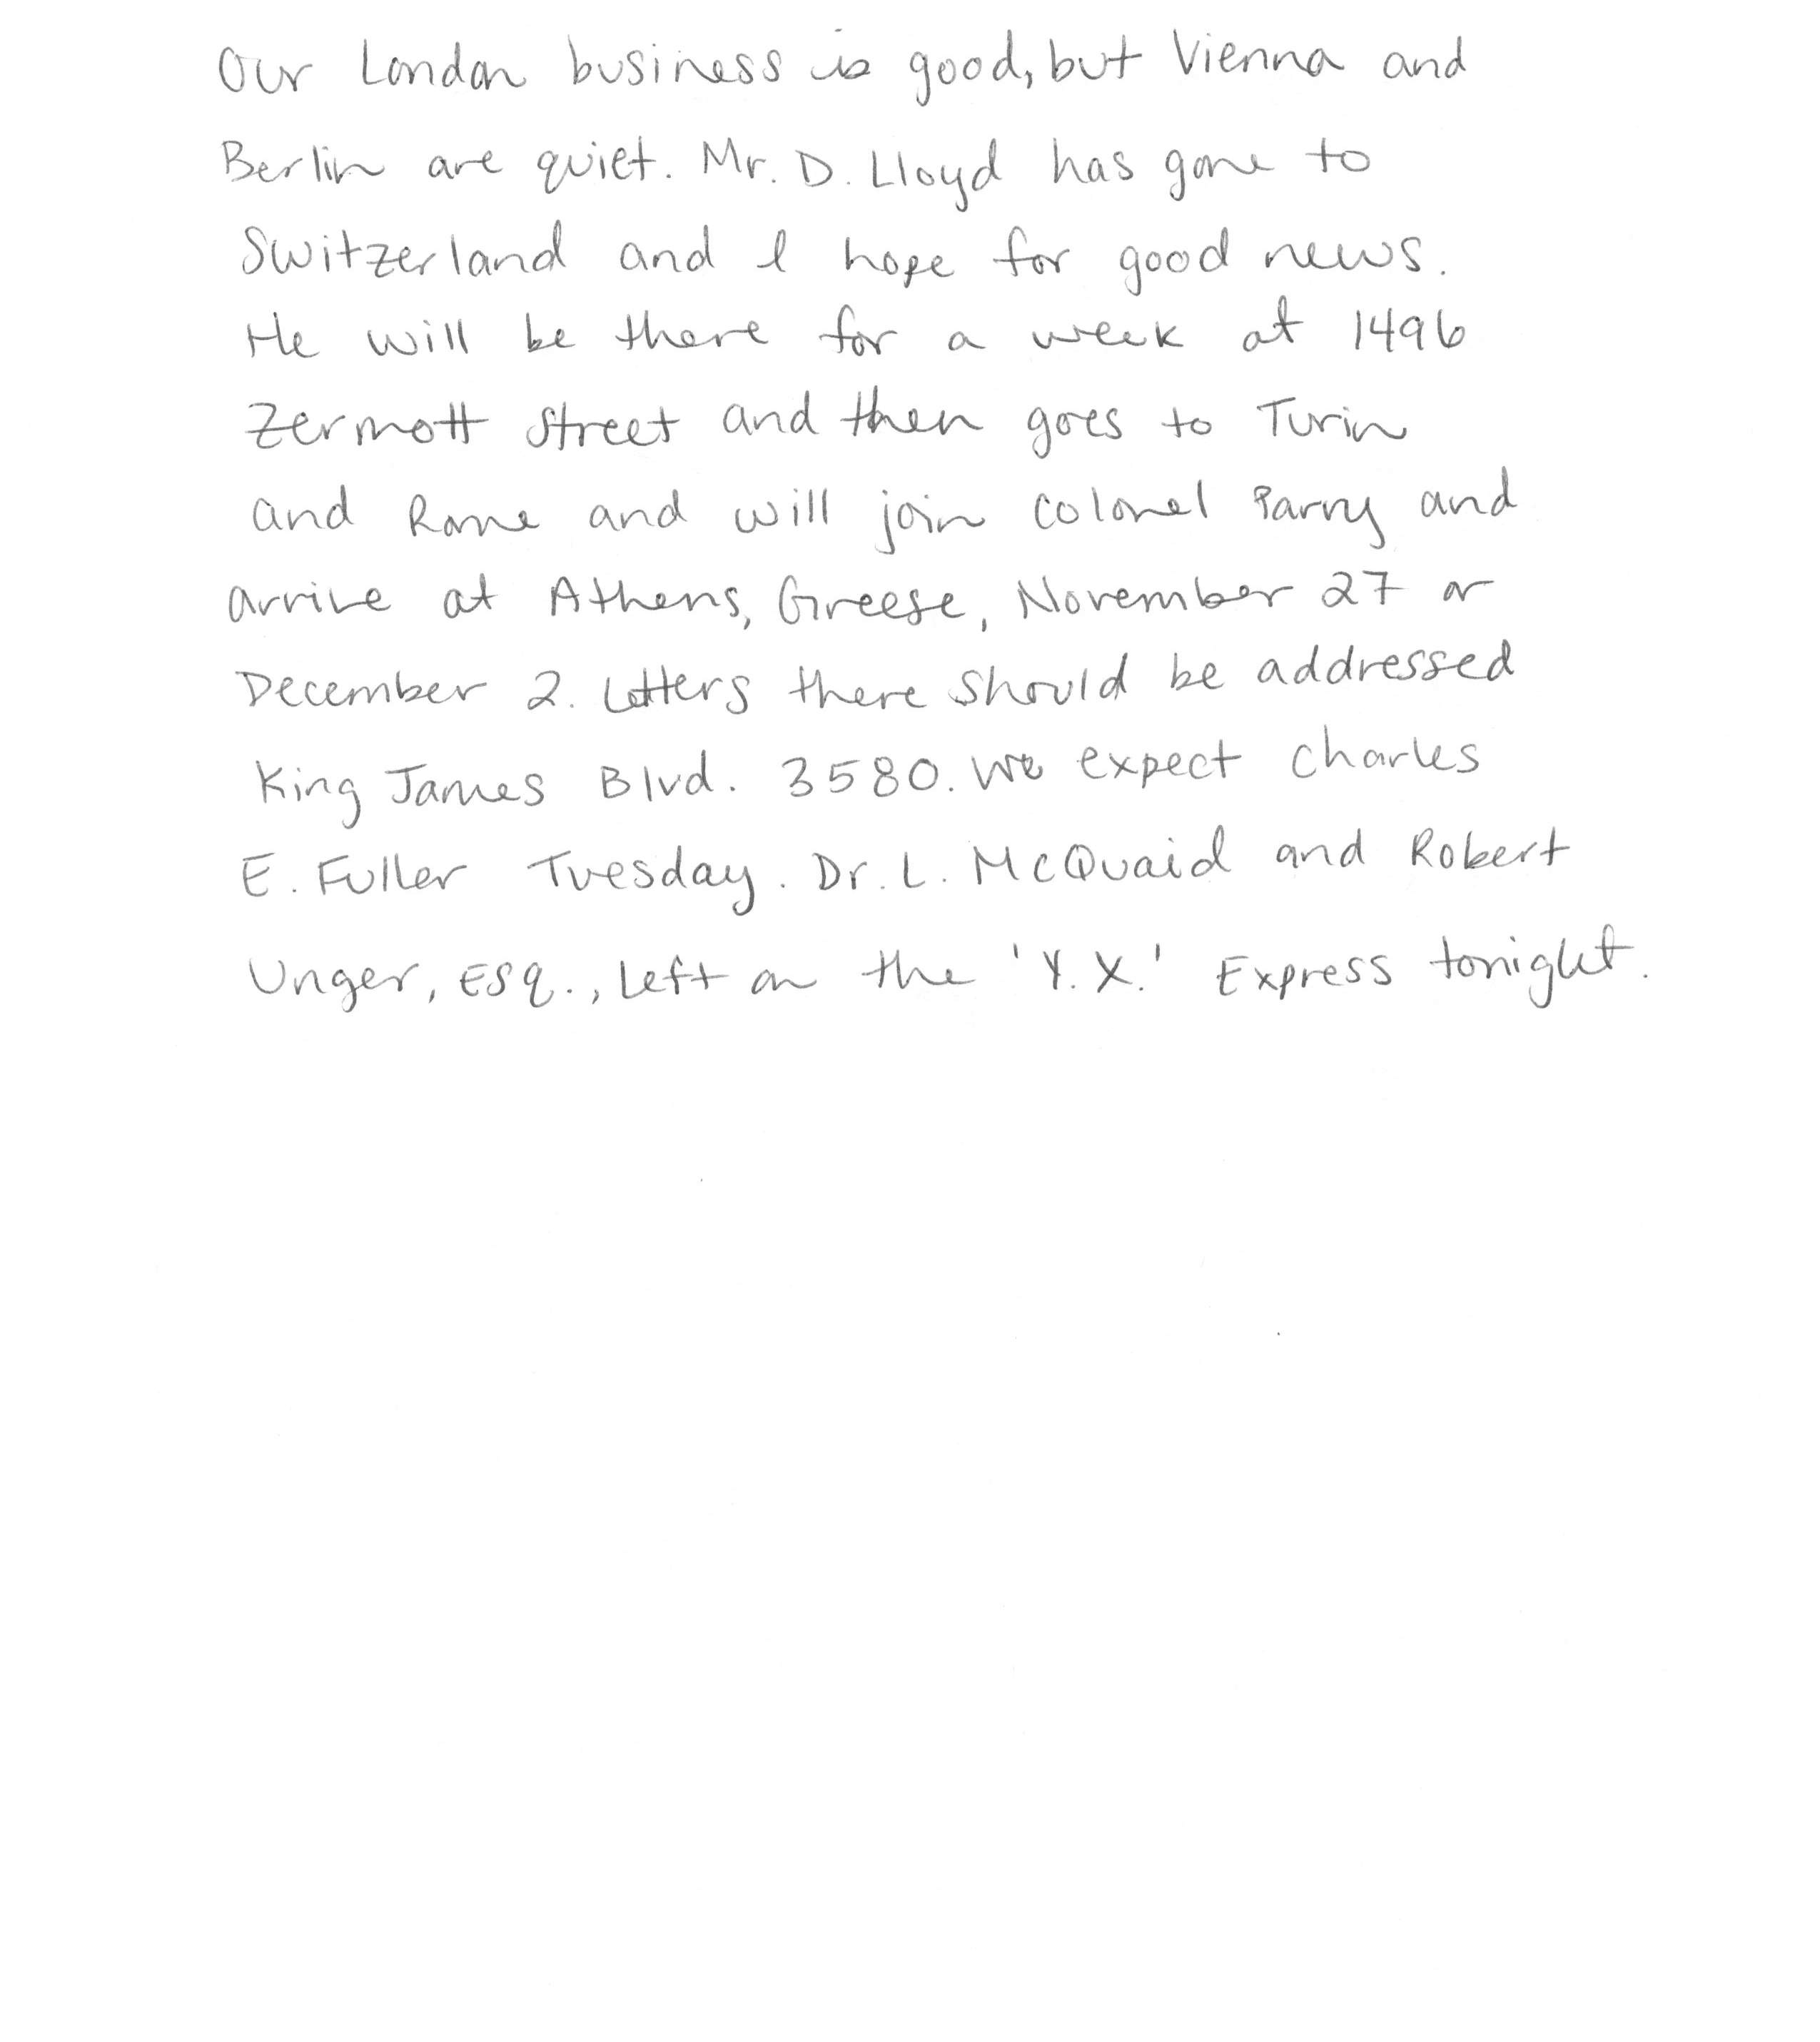 Our London business is good, but Vienna and
Berlin are quiet. Mr. D. Lloyd has gone to
Switzerland and I hope for good news.
He will be there for a week at 1496
Zermott Street and then goes to Turin
and Rome and will join Colonel Parry and
arrive at Athens, Greese, November 27 or
December 2. Letters there should be addressed
King James Blvd. 3580. We expect Charles
E. Fuller Tuesday. Dr. L. McQuaid and Robert
Unger, Esq., left on the 'Y.X.' Express tonight.